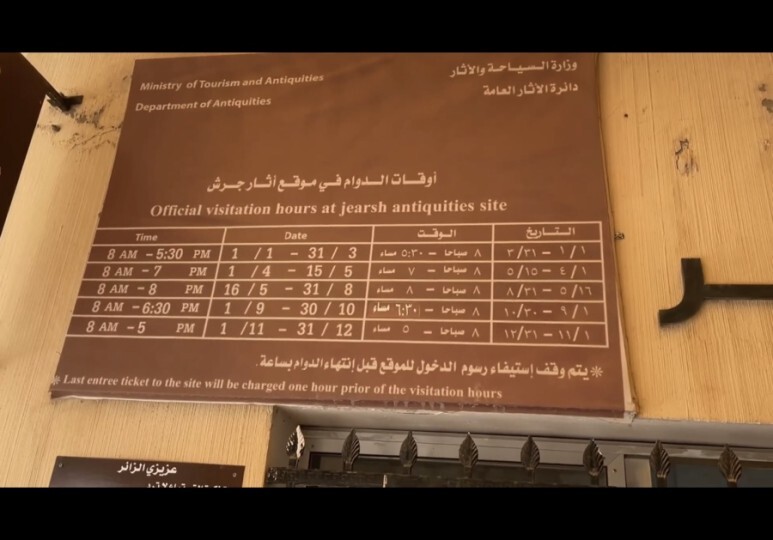 Ministry of Tourism and Antiquities
وزارة السياحة والأثار
Department of Antiquities
دائرة الأثار العامة
أوقات الدوام في موقع أثار جرش
Official visitation hours at jearsh antiquities site
Time Date الوقت التاريخ
8 AM - 5:30 PM 1 / 1 - 31 / 3 ٨ صباحا - ٥:٣٠ مساء ١/١ - ٣/٣١
8 AM - 7 PM 1 / 4 - 15 / 5 ٨ صباحا - ٧ مساء ٤/١ - ٥/١٥
8 AM - 8 PM 16 / 5 - 31 / 8 ٨ صباحا - ٨ مساء ٥/١٦ - ٨/٣١
8 AM - 6:30 PM 1 / 9 - 30 / 10 ٨ صباحا - ٦:٣٠ مساء ٩/١ - ١٠/٣٠
8 AM - 5 PM 1 / 11 - 31 / 12 ٨ صباحا - ٥ مساء ١١/١ - ١٢/٣١
✳يتم وقف إستيفاء رسوم الدخول للموقع قبل إنتهاء الدوام بساعة.
✳ Last entree ticket to the site will be charged one hour prior of the visitation hours
عزيزي الزائر